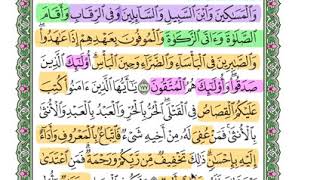 وَٱلْمَسَٰكِينَ وَٱبْنَ ٱلسَّبِيلِ وَٱلسَّآئِلِينَ وَفِى ٱلرِّقَابِ وَأَقَامَ
ٱلصَّلَوٰةَ وَءَاتَى ٱلزَّكَوٰةَ وَٱلْمُوفُونَ بِعَهْدِهِمْ إِذَا عَٰهَدُوا۟
وَٱلصَّٰبِرِينَ فِى ٱلْبَأْسَآءِ وَٱلضَّرَّآءِ وَحِينَ ٱلْبَأْسِ أُو۟لَٰٓئِكَ ٱلَّذِينَ
صَدَقُوا۟ وَأُو۟لَٰٓئِكَ هُمُ ٱلْمُتَّقُونَ ١٧٧ يَٰٓأَيُّهَا ٱلَّذِينَ ءَامَنُوا۟ كُتِبَ
عَلَيْكُمُ ٱلْقِصَاصُ فِى ٱلْقَتْلَى ٱلْحُرُّ بِٱلْحُرِّ وَٱلْعَبْدُ بِٱلْعَبْدِ وَٱلْأُنثَىٰ
بِٱلْأُنثَىٰ فَمَنْ عُفِىَ لَهُۥ مِنْ أَخِيهِ شَىْءٌ فَٱتِّبَاعٌۢ بِٱلْمَعْرُوفِ وَأَدَآءٌ
إِلَيْهِ بِإِحْسَٰنٍ ذَٰلِكَ تَخْفِيفٌ مِّن رَّبِّكُمْ وَرَحْمَةٌ فَمَنِ ٱعْتَدَىٰ